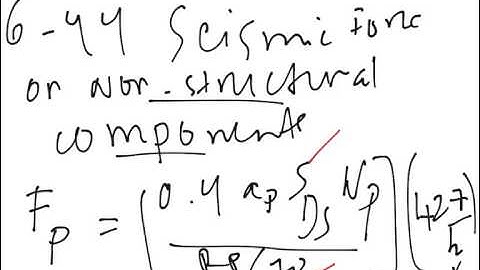 6-44 Seismic Force
on Non-structural
components
F_p = [0.4 a_p S_DS W_p / (R_p/I_p)] (1+2 z/h)